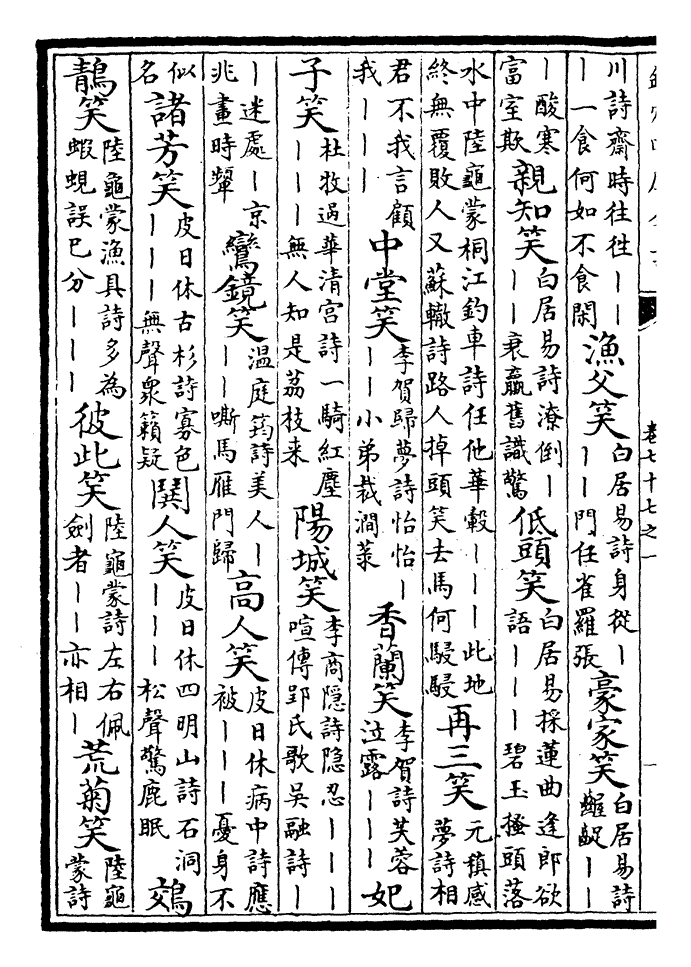 川詩齋時往往｜｜
｜一食何如不食閑
漁父笑
白居易詩身從｜
｜｜門任雀羅張
豪家笑
白居易詩
齷齪｜｜
｜酸寒
富室欺
親知笑
白居易詩潦倒｜
｜｜衰羸舊識驚
低頭笑
白居易採蓮曲逢郎欲
語｜｜｜碧玉搔頭落
水中陸龜蒙桐江釣車詩任他華轂｜｜｜此地
終無覆敗人又蘇轍詩路人掉頭笑去馬何駸駸
再三笑
元稹感
夢詩相
君不我言顧
我｜｜｜
中堂笑
李賀歸夢詩怡怡｜
｜｜小弟裁澗菜
香蘭笑
李賀詩芙蓉
泣露｜｜｜
妃
子笑
杜牧過華清宮詩一騎紅塵
｜｜｜無人知是荔枝来
陽城笑
李商隱詩隱忍｜｜｜
喧傳郢氏歌吳融詩｜
｜迷處｜京
兆畫時顰
鸞鏡笑
溫庭筠詩美人｜
｜｜嘶馬雁門歸
高人笑
皮日休病中詩應
被｜｜｜憂身不
似
名
諸芳笑
皮日休古杉詩寡色
｜｜｜無聲衆籟疑
闃人笑
皮日休四明山詩石洞
｜｜｜松聲驚鹿眠
鵁
鶄笑
陸龜蒙漁具詩多為
蝦蜆誤已分｜｜｜
彼此笑
陸龜蒙詩左右佩
劍者｜｜亦相｜
荒菊笑
陸龜
蒙詩
卷七十七之一